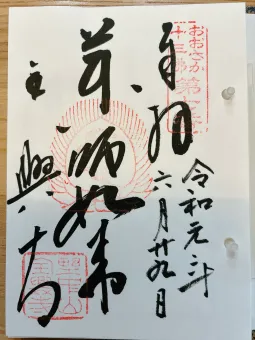 おおさか
十三佛第七番
奉拝
令和元年
六月廿九日
薬師如来
全興寺